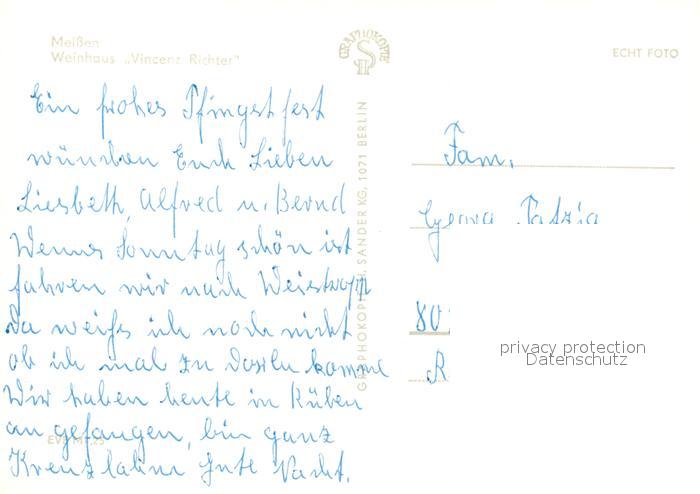 Meißen
Weinhaus „Vincenz Richter"
GRAPHOKOPIE
ECHT FOTO
Ein frohes Pfingstfest
wünschen Euch Lieben
Liesbeth, Alfred u. Bernd
Wenns Sonntag schön ist
fahren wir nach
Da weiß ich noch nicht
ob ich mal zu komme
Wir haben heute in Rüben
angefangen, bin ganz
Kreuzlahm Gute Nacht.
GRAPHOKOPIE H. SANDER KG, 1071 BERLIN
Fam.
80
R
privacy protection
Datenschutz